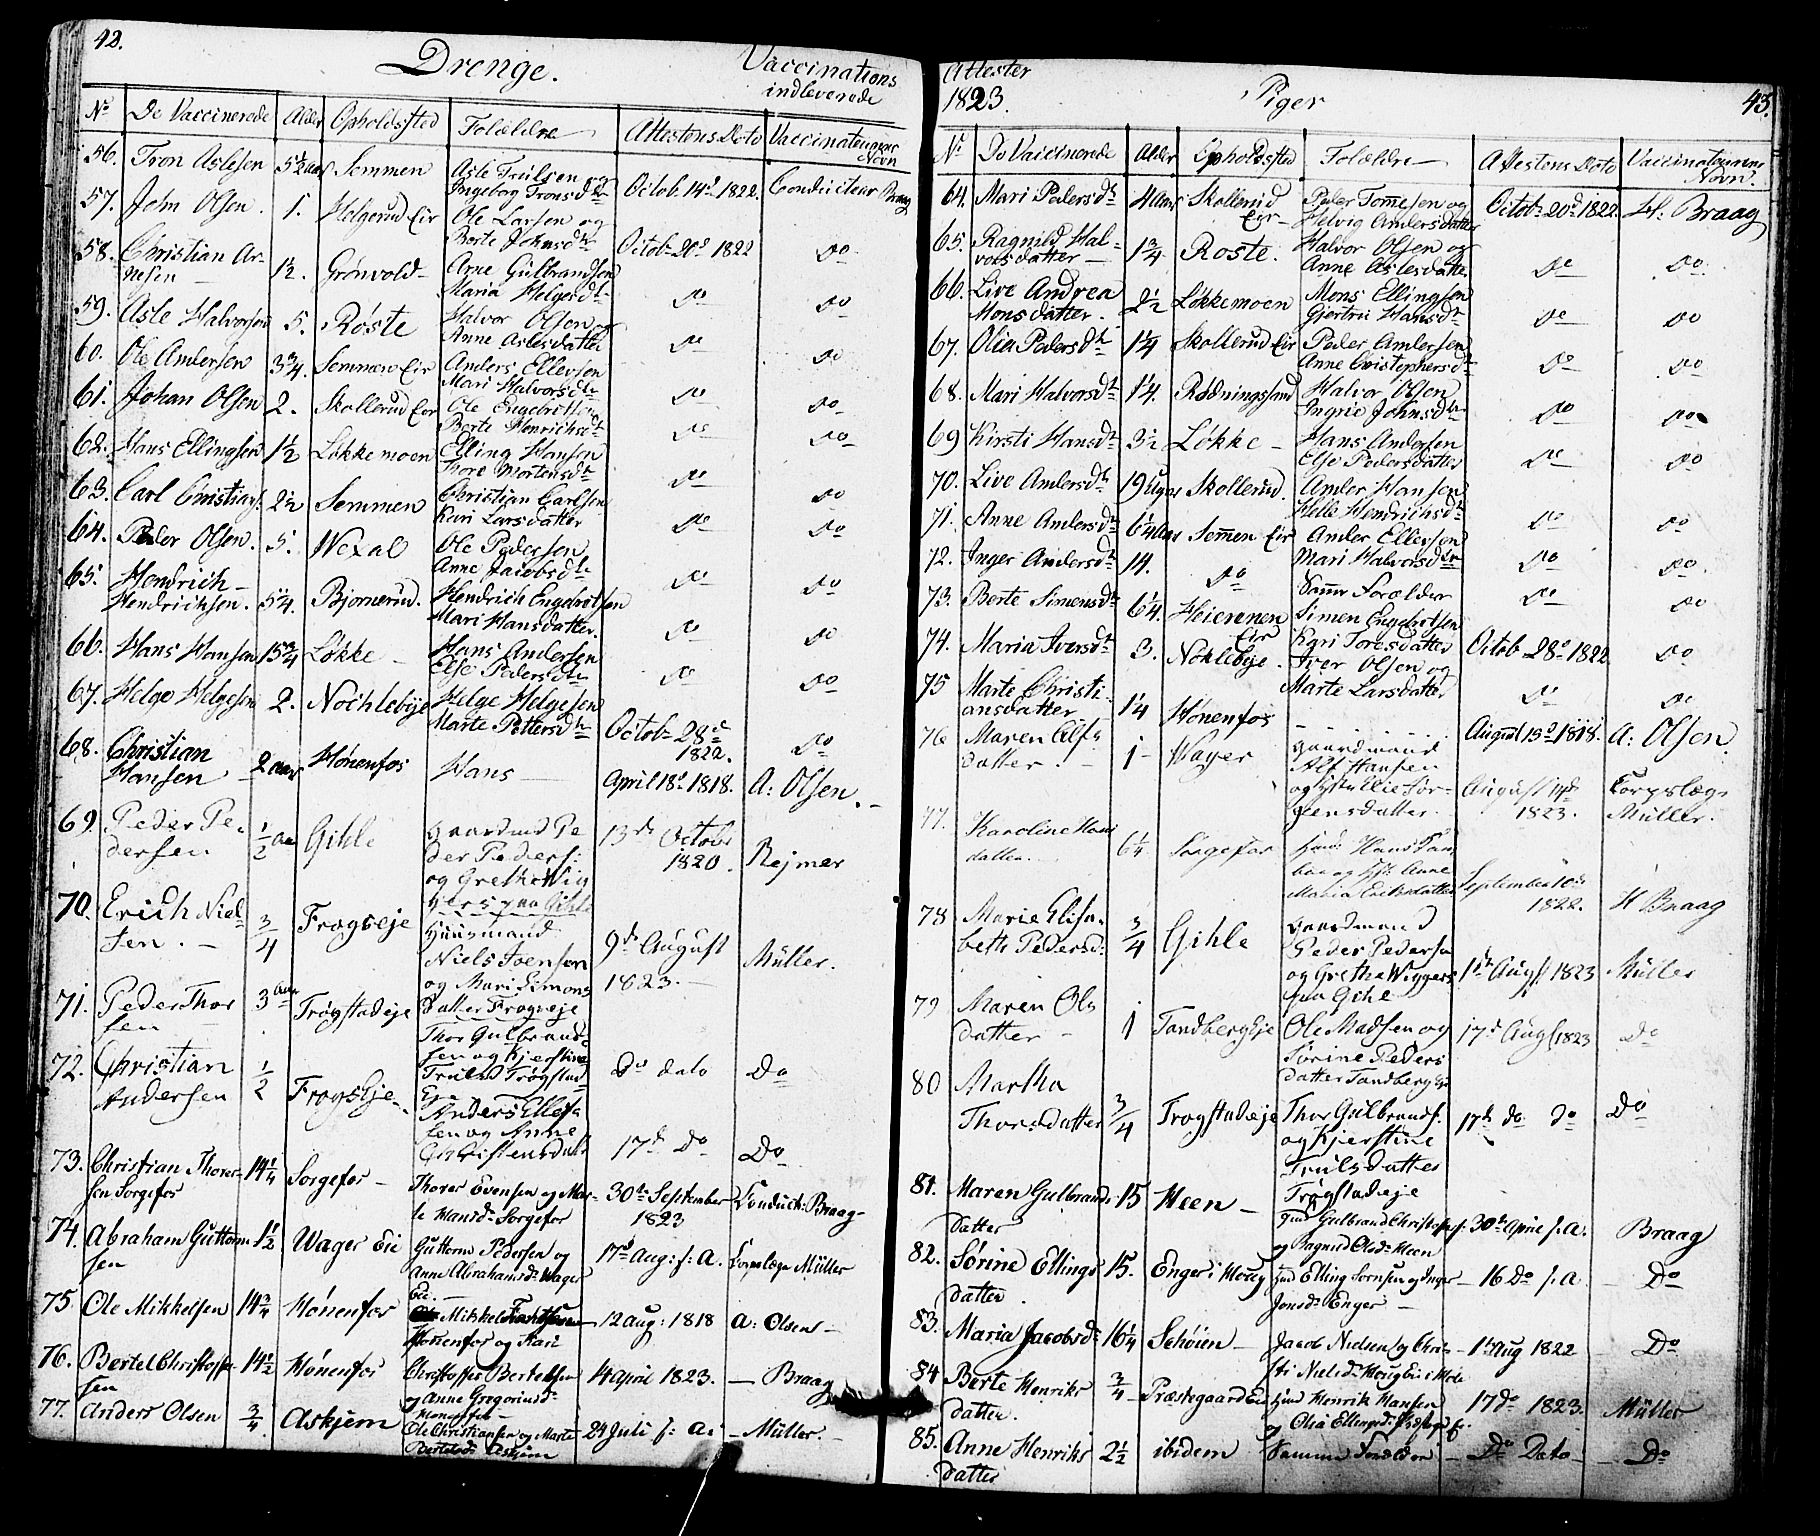 42.
Drenge.
Vaccinations
indleverede
No De Vaccinerede Alder Opholdssted Forældre Attestens Dato Vaccinateurens Navn
56. Tron Aslesen 5½ aar Semmen Asle Trulsen og
Ingeborg Tronsdtr Octob. 14d 1822. Conducteur Braag
57. John Olsen. 1. Helgerud Eir Ole Larsen og
Berte Johnsdtr Octob 20d 1822 Do
58. Christian Ar-
nesen 1½. Grönvold Arne Gulbrandsen
Maria Helgesdtr Do Do
59. Asle Halvorsen 5. Røste Halvor Olsen og
Anne Aslesdatter Do Do
60. Ole Andersen 3¾. Semmen Eir Anders Ellevsen
Mari Halvorsdtr Do Do
61. Johan Olsen 2. Skollerud Eir Ole Engebritsen
Berte Henrichsdtr Do Do
62. Hans Ellingsen 1½ Løkkemoen Elling Hansen
Thore Mortensdtr Do Do
63. Carl Christians. 2½ Semmen Christian Carlsen
Kari Larsdatter Do Do
64. Peder Olsen. 5. Wexal Ole Pedersen
Anne Jacobsdtr Do Do
65. Hendrich
Hendrichsen. 5¼. Bjornerud. Hendrich Engebretsen
Mari Hansdatter. Do Do
66. Hans Hansen 15¾ Løkke Hans Andersen
Else Pedersdtr Do Do
67. Helge Helgesen 2. Nochlebye Helge Helgesen
Marte Pettersdtr Octob 28d
1822. Do
68. Christian
Hansen 2 aar Hønenfos Hans April 18d 1818. A: Olsen.
69. Peder Pe-
dersen ½ aar Gihle Gaardmd Pe
der Peders:
og Grethe Wig
gers paa Gihle 13de Octobr
1820. Rejmer
70. Erich Niel-
sen. ¾ Frogseje Huusmand
Niels Ivensen
og Mari Simons
datter Frogneje 9de August
1823. Müller.
71. Peder Thor
sen 3 aar Trøgstadeje Thor Gulbrand
sen og Kjerstine
Truls Trøgstad
Eje Do dato Do
72. Christian
Andersen ½ Frogseje Anders Ellef
sen og Anne
Christensdatt 17de Do Do
73. Christian Thorer
sen Sorgefos 14¼ Sorgefos Thorer Evensen og Mar-
te Hansd. Sorgefos 30te September
1823 Conduct: Braag
74. Abraham Guttorm
sen 1½ Wager Eie Guttorm Pedersen og
Anne Abrahamsd. Wager
Eie. 17d Aug: s: A. Corpslæge Müller
75. Ole Mikkelsen 14¾ Hønenfos Mikkel
Hønenfos og Kari 12 Aug: 1818 A: Olsen
76. Bertel Christoffer
sen 14½ Hønenfos Christoffer Bertelsen
og Anne Gregoriusd.
Hønenfos 14 April 1823. Braag
77. Anders Olsen ¾. Askjem Ole Christiansen og Marte
Bertelsd. Askjem 24 Juli s: A: Müller.
Attester
1823.
Piger
43.
No De Vaccinerede Alder Opholdssted Forældre Attestens Dato Vaccinateurens Navn.
64. Mari Pedersdtr 4 Aar Skollerud
Eir Peder Tomesen og
Helvig Andersdatter Octob 20d 1822. H: Braag
65. Ragnild Hal-
vorsdatter 1¾ Roste. Halvor Olsen og
Anne Aslesdatter Do Do
66. Live Andrea
Monsdatter. 2½ Løkkemoen Mons Ellingsen
Gjertru Hansdtr Do Do
67. Olia Pedersdtr 1¼ Skollerud Eir Peder Andersen
Anne Cristophersdtr Do Do
68. Mari Halvorsdtr 1¼. Rødningssand Halvor Olsen
Ingrie Johnsdtr Do Do
69 Kirsti Hansdtr 3½ Løkke Hans Andersen
Else Pedersdatter Do Do
70. Live Andersdtr 19 Uger Skollerud. Ander Hansen
Helle Hendrichsdtr Do Do
71. Anne Andersdtr 6¼ Aar Semen Eir Ander Ellevsen
Mari Halvorsdtr Do Do
72. Inger Andersdtr 14. Do Samme Forældre Do Do
73. Berte Simensdtr 6¼. Heieren
Eir Simen Engebretsen
Kari Toresdatter
74. Maria Iversdtr 3. Noklebye. Iver Olsen og
Marte Larsdatter Octob 28d 1822. Do
75 Marte Christi-
ansdatter 1¼ Hønenfos Do Do
76 Maren Alfs
datter. 1 Wager Gaardmand
Alf Hansen
gensdatter. August 13d 1818. A: Olsen.
77. Karoline Hans
datter. 6¼ Sorgefos August 14de
1823. Corpslæge
Müller.
78 Marie Elisa-
beth Pedersd: ¾ Gihle Gaardmand
Peder Pedersen
og Grethe Wiggers
paa Gihle September 10de
1822. H Braag
79 Maren Ols
datter 1 Tandberg Eje Ole Madsen og
Sørine Peders
datter Tandberg Eje 1ste Augs. 1823 Müller
80 Martha
Thorsdatter ¾ Trøgstadeje Thor Gulbrands.
og Kjerstine
Trulsdatter
Trøgstadeje 17d Augs 1823 Do
17de do do Do
81. Maren Gulbrands
datter 15 Heen Gulbrand Christophers.
og Ragnild Olsdr Heen 30te April s. A. Braag
82. Sörine Ellings
datter. 15. Enger i Houg Elling Sornsen og Inger
Jonsdr Enger 16 Do s. A Do
83. Maria Jacobsdr 16¼ Schöien Jacob Nielsen og Chris
ti Nielsdr 1 Aug 1822 Do
84 Berte Henriks
datter. ¾ Præstegaard Eie Henrik Hansen
og Olia Ellingsdr 17 Do 1823. Müller
85. Anne Henriks
datter 2½ ibidem Samme Forældre Do Dato Do